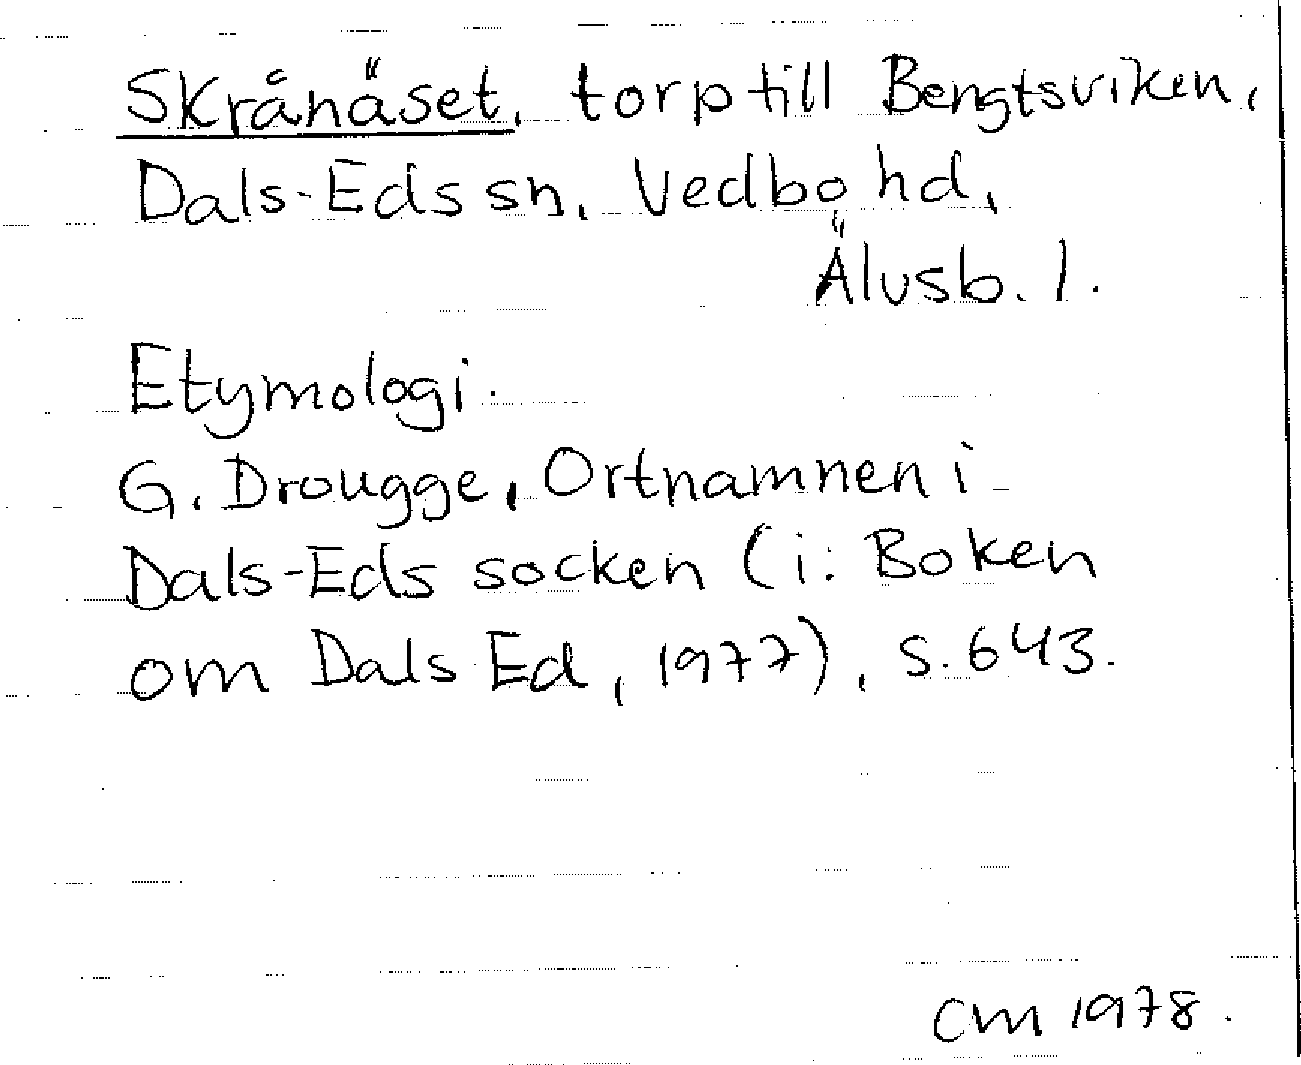 Skrånäset, torp till Bengtsviken,
Dals-Eds sn, Vedbo hd,
Älvsb. l.
Etymologi.
G. Drougge, Ortnamnen i
Dals-Eds socken (i: Boken
om Dals Ed, 1977), s. 643.
CM 1978.